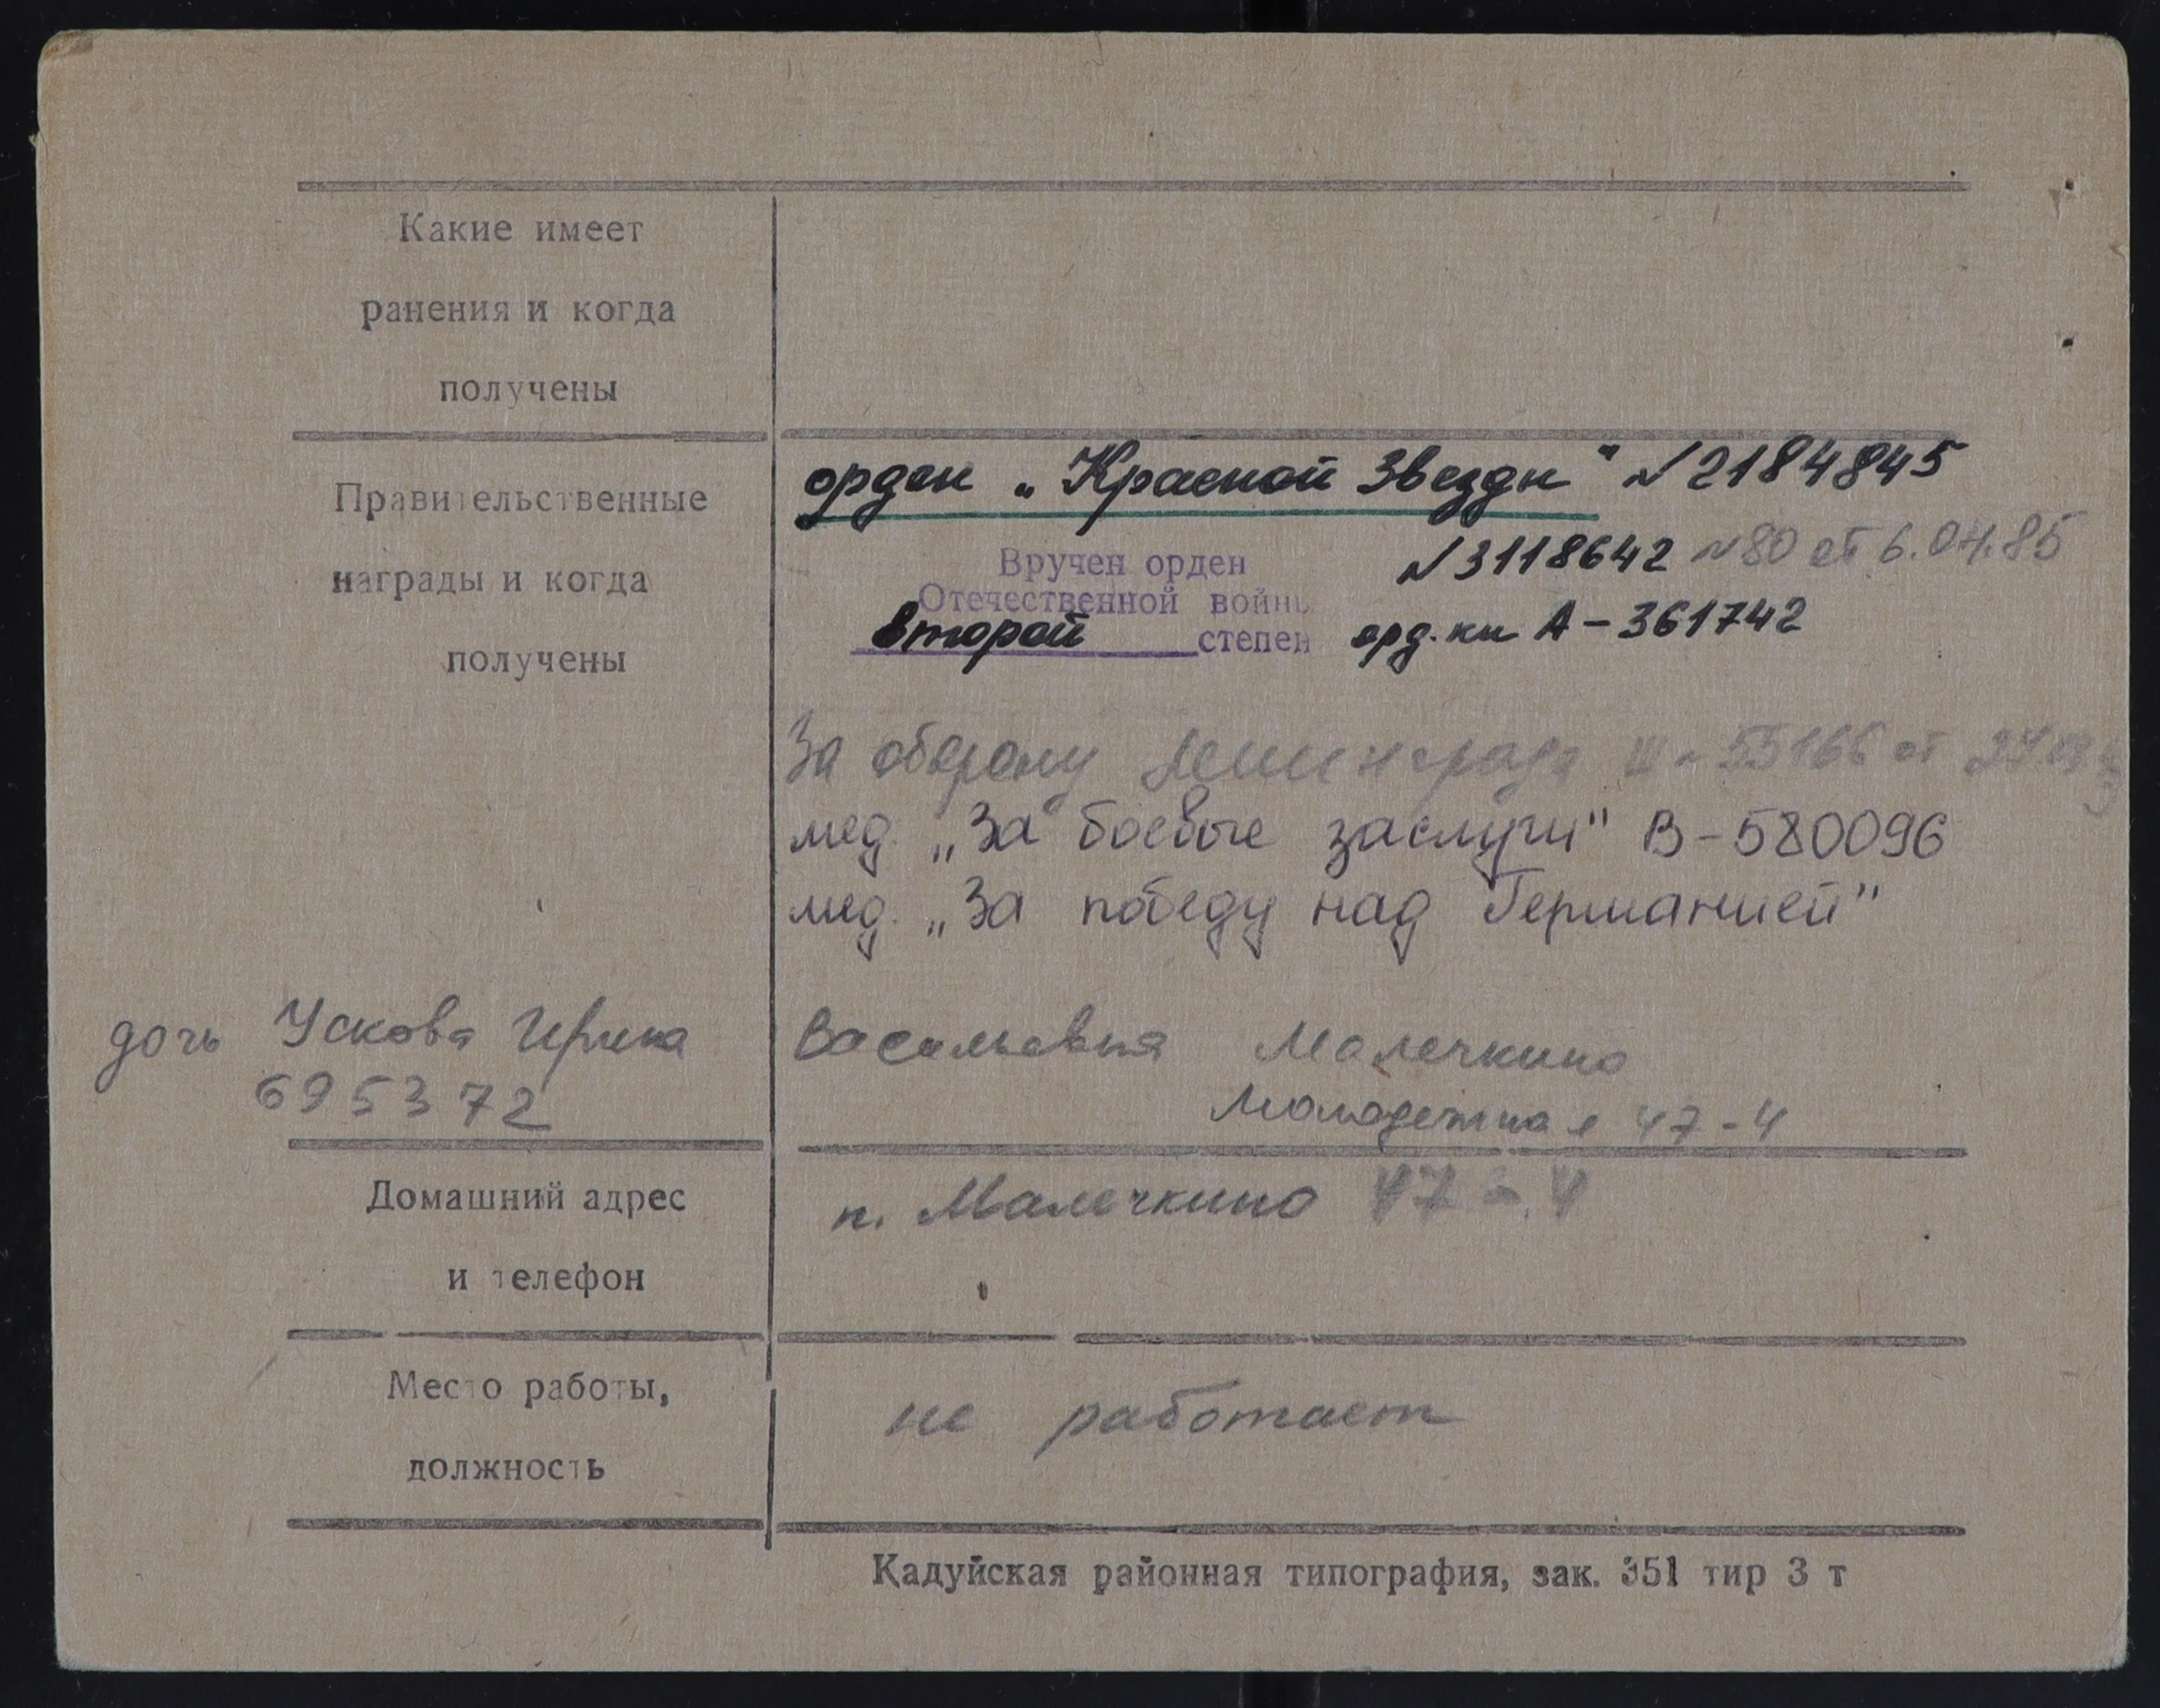 Какие имеет
ранения и когда
получены
Правительственные
награды и когда
получены
орден „Красной Звезды" №2184845
Вручен орден
Отечественной войны
второй степен
№3118642 №80 от 6.04.85
орд. кн А-361742
За оборону Ленинграда 55166 от
мед. „За боевые заслуги" В-580096
мед. „За победу над Германией"
дочь Ускова Ирина Васильевна Малечкино
695372 Молодежная 47-4
Домашний адрес
и телефон
п. Малечкино 47-4
Место работы,
должность
не работает
Кадуйская районная типография, зак. 351 тир 3 т